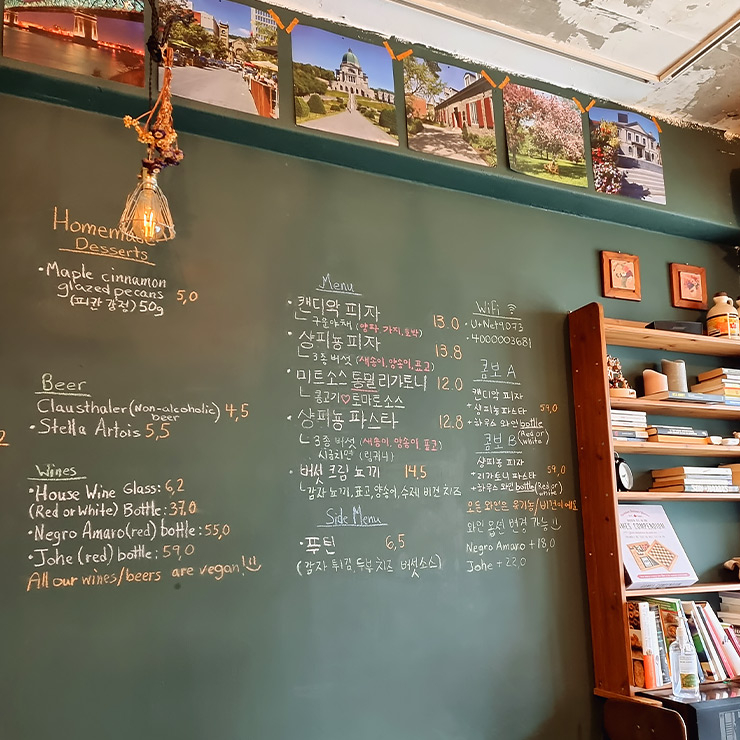 Homemade
Desserts
·Maple cinnamon
glazed pecans 5,0
(피칸 강정) 50g
Beer
Clausthaler (Non-alcoholic) 4,5
beer
·Stella Artois 5,5
Wines
·House Wine Glass: 6,2
(Red or White) Bottle: 37,0
·Negro Amaro (red) bottle: 55,0
·Johe (red) bottle: 59,0
All our wines/beers are vegan!
Menu
·캔디악 피자 13.0
구운야채 (양파, 가지, 호박)
·상피뇽 피자 13.8
3종 버섯 (새송이, 양송이, 표고)
·미트소스 통밀 리가토니 12.0
콩고기♡토마토소스
·상피뇽 파스타 12.8
3종 버섯 (새송이, 양송이, 표고)
(링귀니)
·버섯 크림 뇨끼 14.5
감자 뇨끼, 표고, 양송이, 수제 비건 치즈
Side Menu
·푸틴 6,5
(감자 튀김, 두부치즈 버섯소스)
WiFi
·U+Net9073
·4000003681
콤보 A
캔디악 피자
+상피뇽파스타 59,0
+하우스 와인 bottle
(Red or White)
콤보 B
상피뇽 피자
+리가토니 파스타 59,0
+하우스 와인 bottle (Red or White)
모든 와인은 유기농/비건이에요
와인 옵션 변경 가능
Negro Amaro +18,0
Johe +22,0